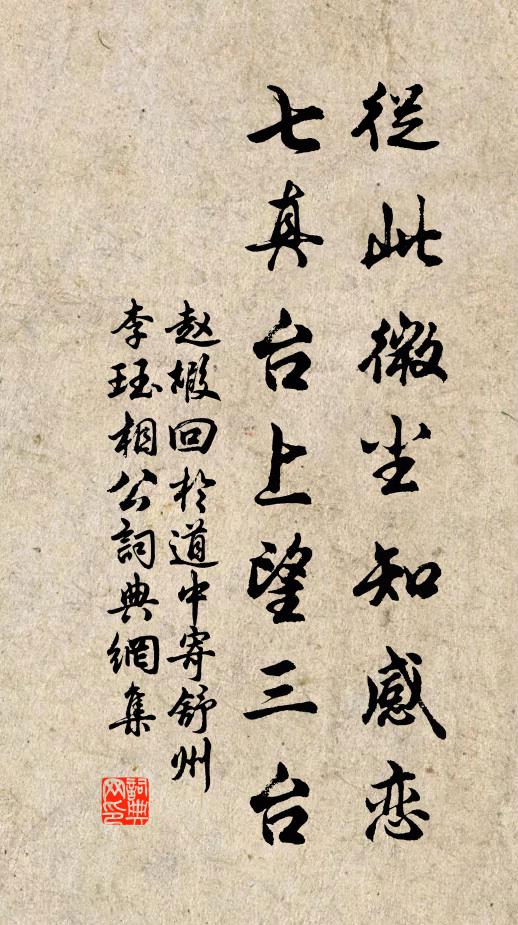 從此微尘知感恋
七真台上望三台
赵嘏回於道中寄舒州
李珏相公詞典網集
詞典
网印